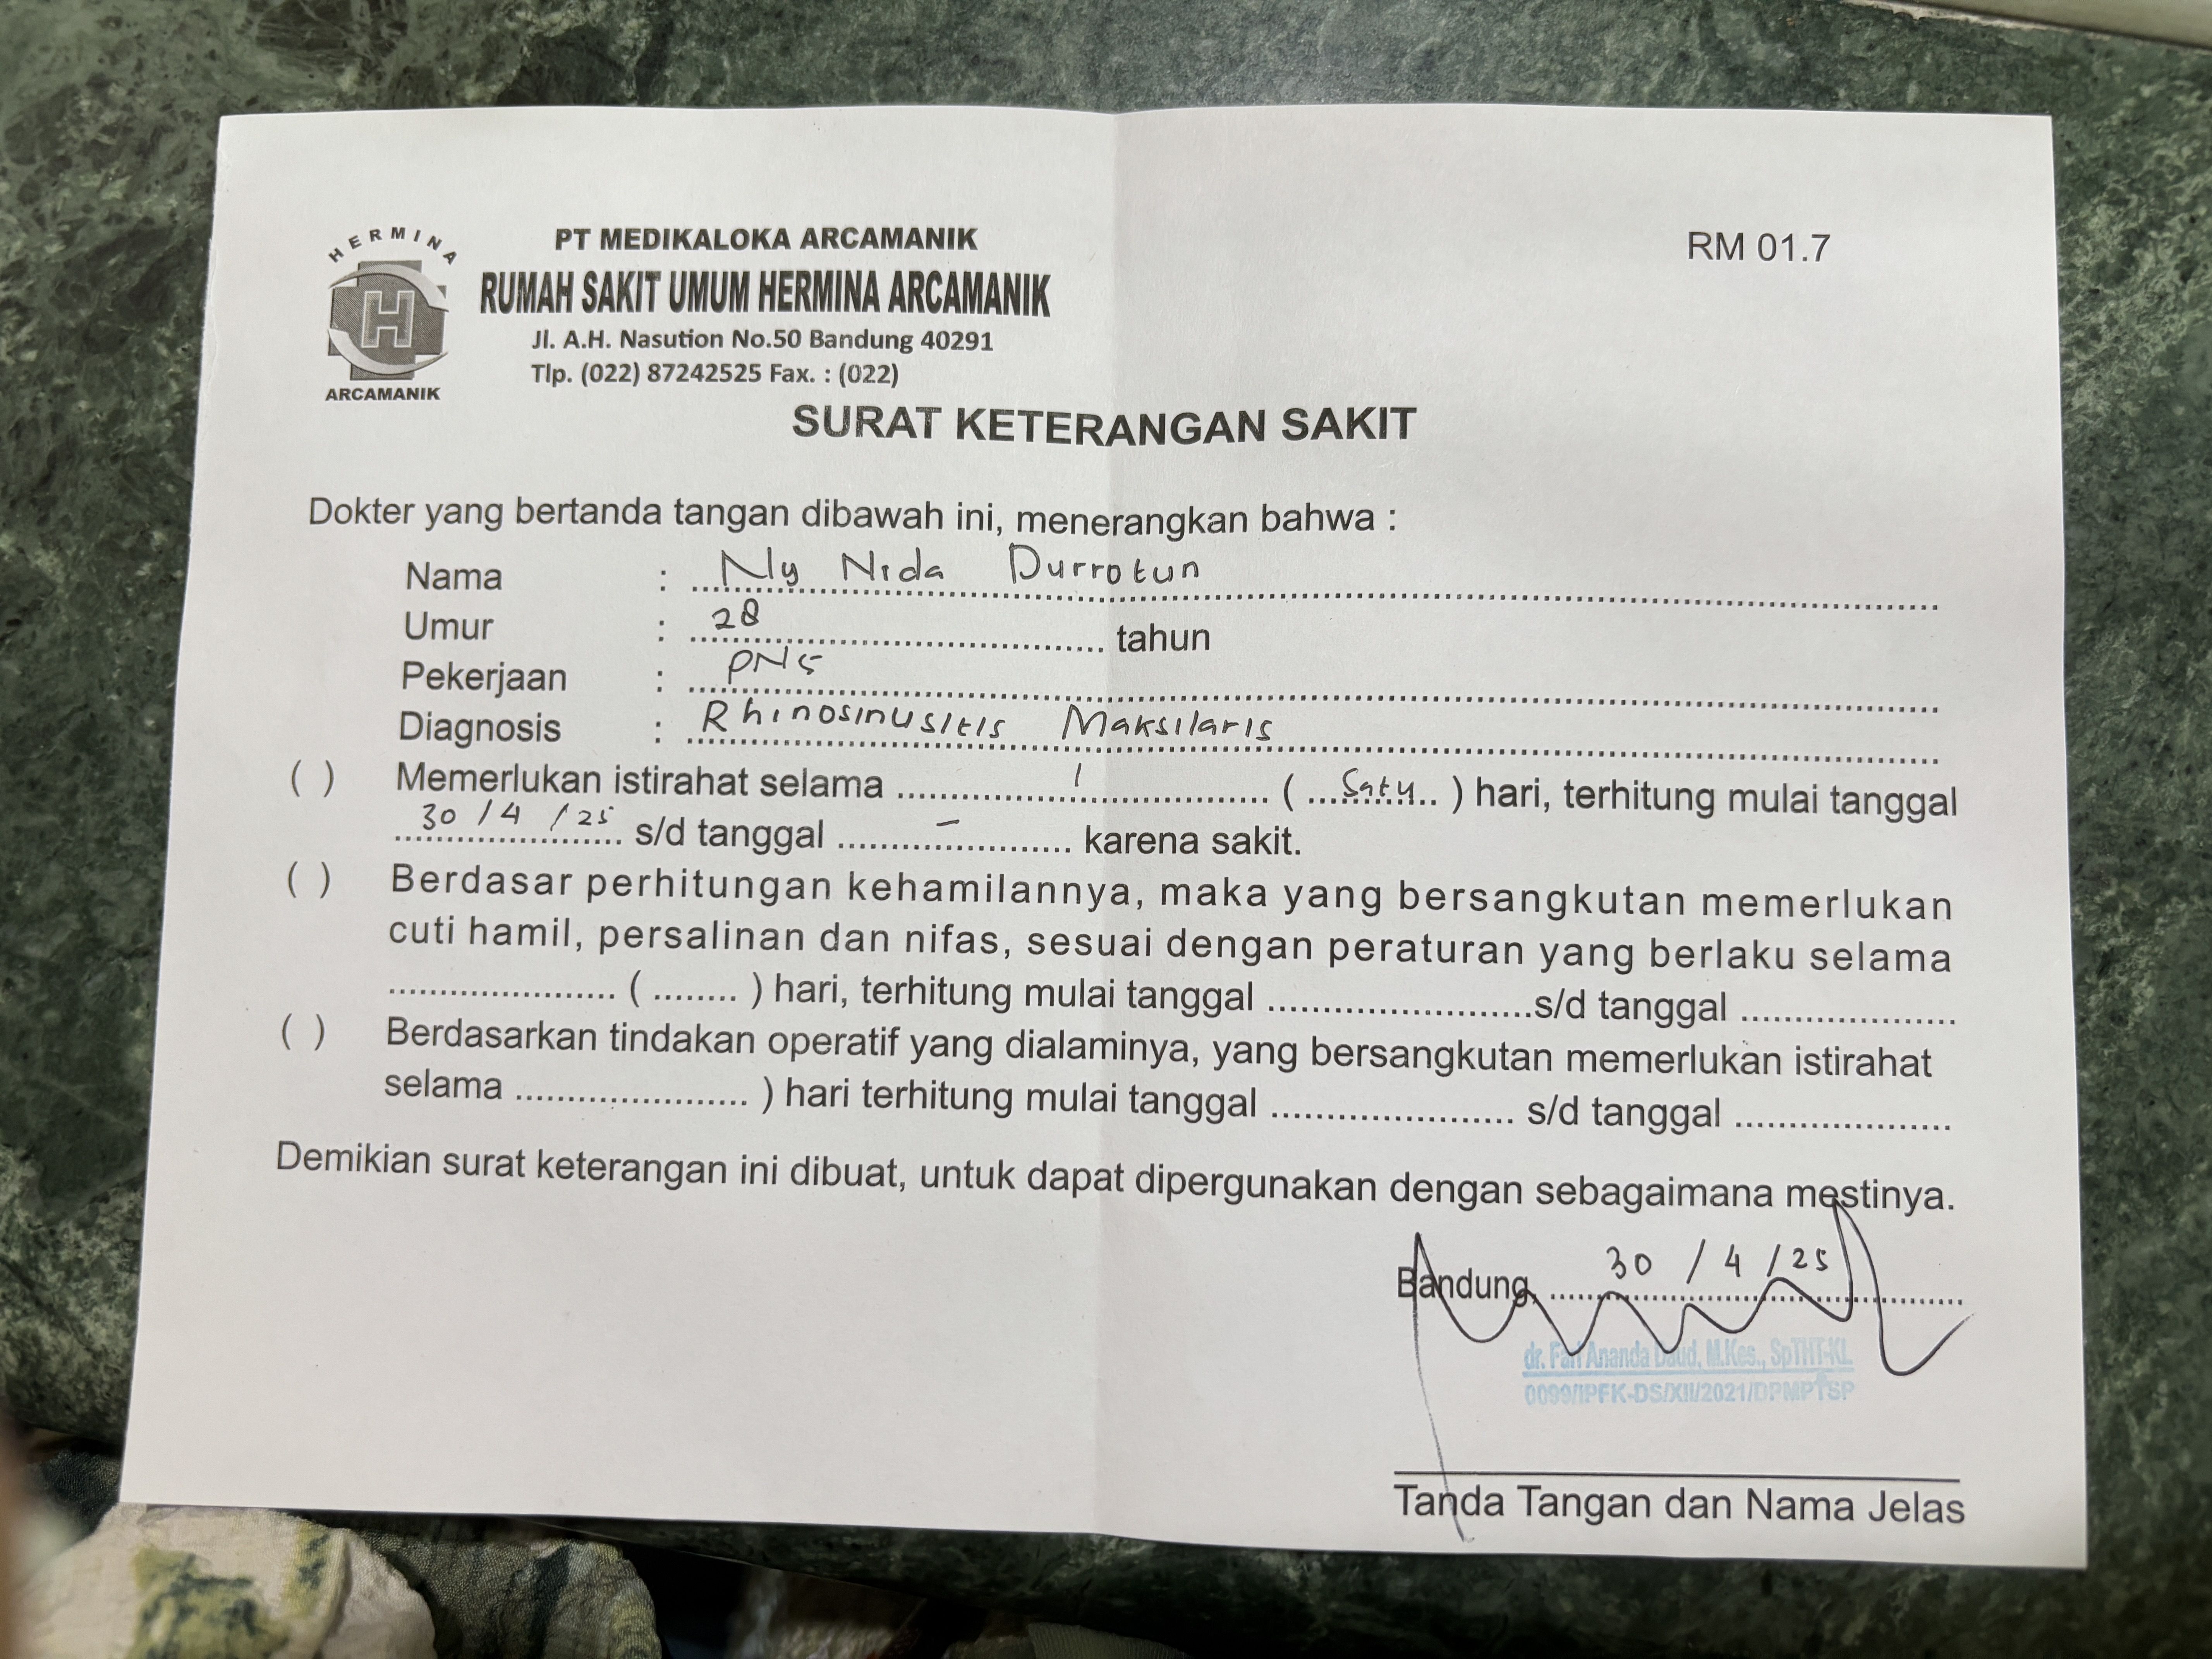 RM 01.7
HERMINA
ARCAMANIK
PT MEDIKALOKA ARCAMANIK
RUMAH SAKIT UMUM HERMINA ARCAMANIK
Jl. A.H. Nasution No.50 Bandung 40291
Tlp. (022) 87242525 Fax. : (022)
SURAT KETERANGAN SAKIT
Dokter yang bertanda tangan dibawah ini, menerangkan bahwa :
Nama : Nly Nida Durrotun
Umur : 28 tahun
Pekerjaan : PNS
Diagnosis : Rhinosinusitis Maksilaris
( ) Memerlukan istirahat selama 1 ( Satu ) hari, terhitung mulai tanggal
30 / 4 / 25 s/d tanggal - karena sakit.
( ) Berdasar perhitungan kehamilannya, maka yang bersangkutan memerlukan
cuti hamil, persalinan dan nifas, sesuai dengan peraturan yang berlaku selama
.................... ( ........ ) hari, terhitung mulai tanggal ........................s/d tanggal ....................
( ) Berdasarkan tindakan operatif yang dialaminya, yang bersangkutan memerlukan istirahat
selama .................... ) hari terhitung mulai tanggal ........................ s/d tanggal ....................
Demikian surat keterangan ini dibuat, untuk dapat dipergunakan dengan sebagaimana mestinya.
Bandung, 30 / 4 / 25
dr. Ananda Daud, M.Kes., SpTHT-KL
0099/IPFK-DS/XII/2021/DPMPTSP
Tanda Tangan dan Nama Jelas